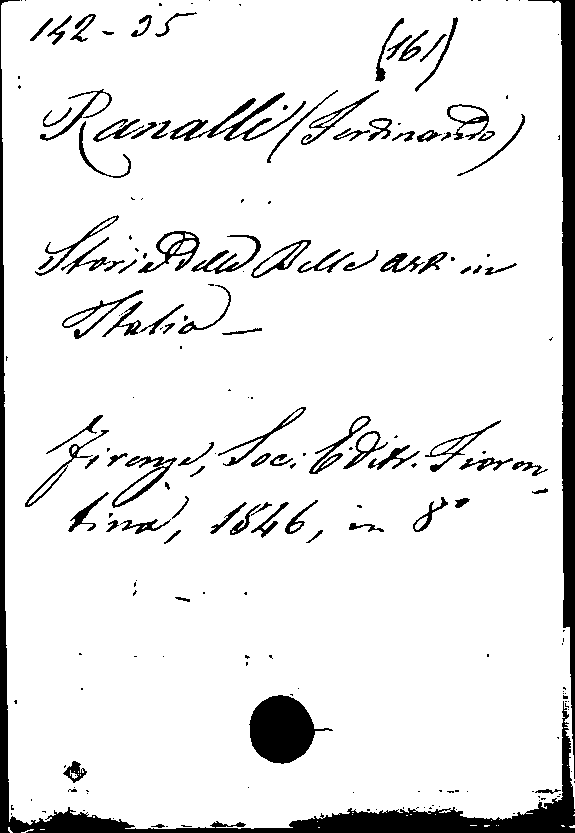 142-35
(161)
Ranalli (Ferdinando)
Storia delle Belle arti in
Italia —
Firenze, Soc. Editr. Fioren-
tina, 1846, in 8°